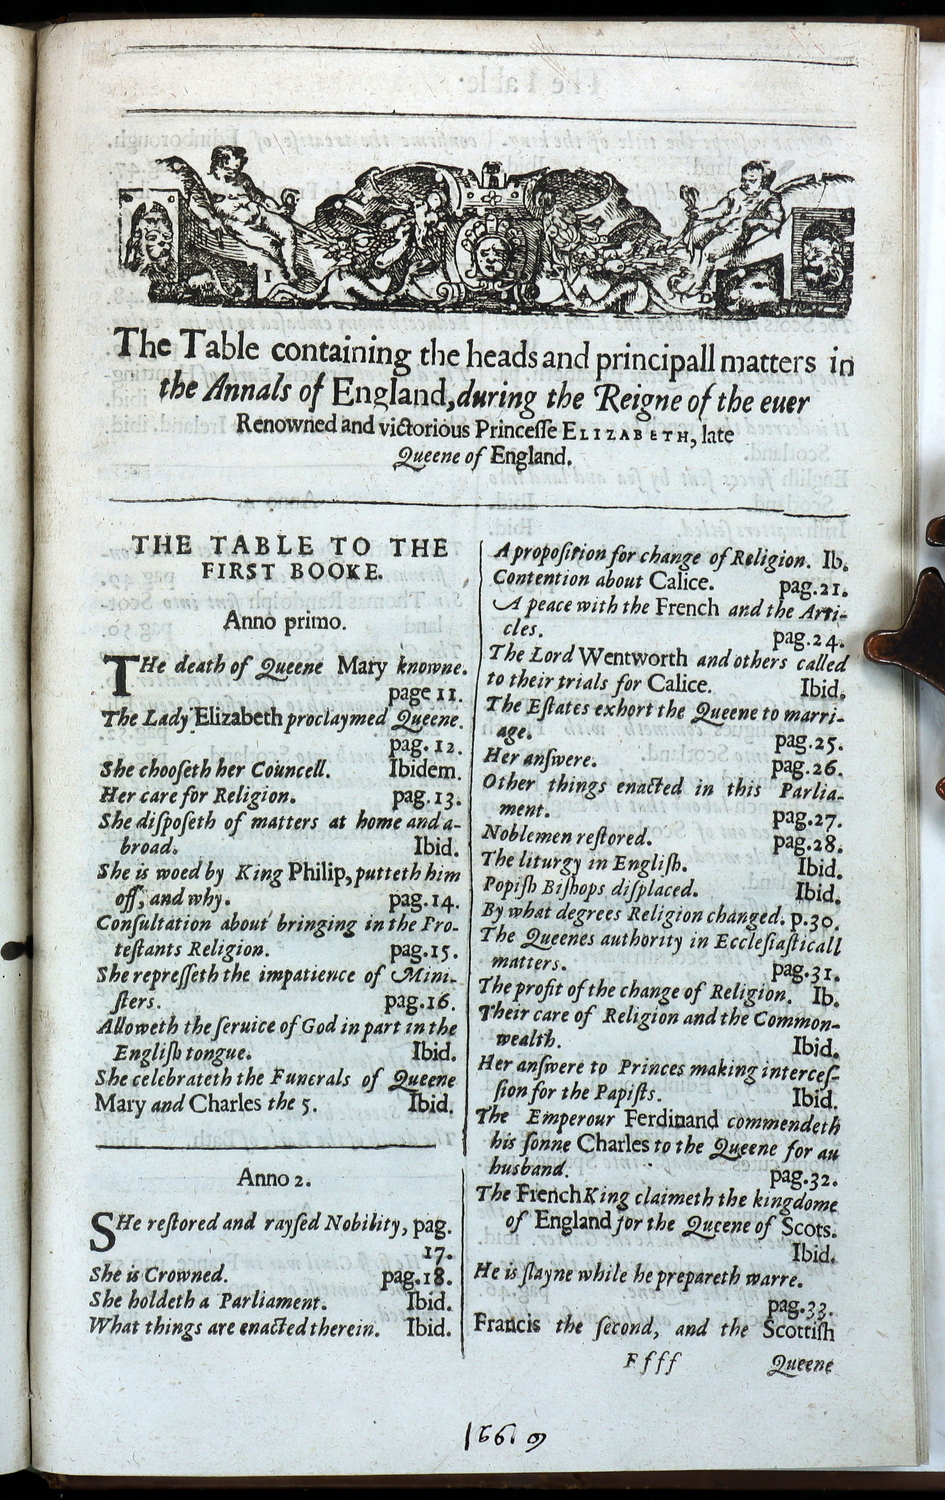 The Table containing the heads and principall matters in
the Annals of England, during the Reigne of the euer
Renowned and victorious Princeſſe ELIZABETH, late
Queene of England.
THE TABLE TO THE
FIRST BOOKE.
Anno primo.
THe death of Queene Mary knowne.
page 11.
The Lady Elizabeth proclaymed Queene.
pag. 12.
She chooſeth her Councell. Ibidem.
Her care for Religion. pag.13.
She diſpoſeth of matters at home and a-
broad. Ibid.
She is woed by King Philip, putteth him
off, and why. pag.14.
Conſultation about bringing in the Pro-
teſtants Religion. pag.15.
She repreſſeth the impatience of Mini-
ſters. pag.16.
Alloweth the ſeruice of God in part in the
Engliſh tongue. Ibid.
She celebrateth the Funerals of Queene
Mary and Charles the 5. Ibid.
Anno 2.
SHe reſtored and rayſed Nobility, pag.
17.
She is Crowned. pag.18.
She holdeth a Parliament. Ibid.
What things are enacted therein. Ibid.
A propoſition for change of Religion. Ib.
Contention about Calice. pag.21.
A peace with the French and the Arti-
cles. pag.24.
The Lord Wentworth and others called
to their trials for Calice. Ibid.
The Eſtates exhort the Queene to marri-
age. pag.25.
Her anſwere. pag.26.
Other things enacted in this Parlia-
ment. pag.27.
Noblemen reſtored. pag.28.
The liturgy in Engliſh. Ibid.
Popiſh Biſhops diſplaced. Ibid.
By what degrees Religion changed. p.30.
The Queenes authority in Eccleſiaſticall
matters. pag.31.
The profit of the change of Religion. Ib.
Their care of Religion and the Common-
wealth. Ibid.
Her anſwere to Princes making interceſ-
ſion for the Papiſts. Ibid.
The Emperour Ferdinand commendeth
his ſonne Charles to the Queene for an
husband. pag.32.
The French King claimeth the kingdome
of England for the Queene of Scots.
Ibid.
He is ſlayne while he prepareth warre.
pag.33.
Francis the ſecond, and the Scottiſh
Ffff Queene